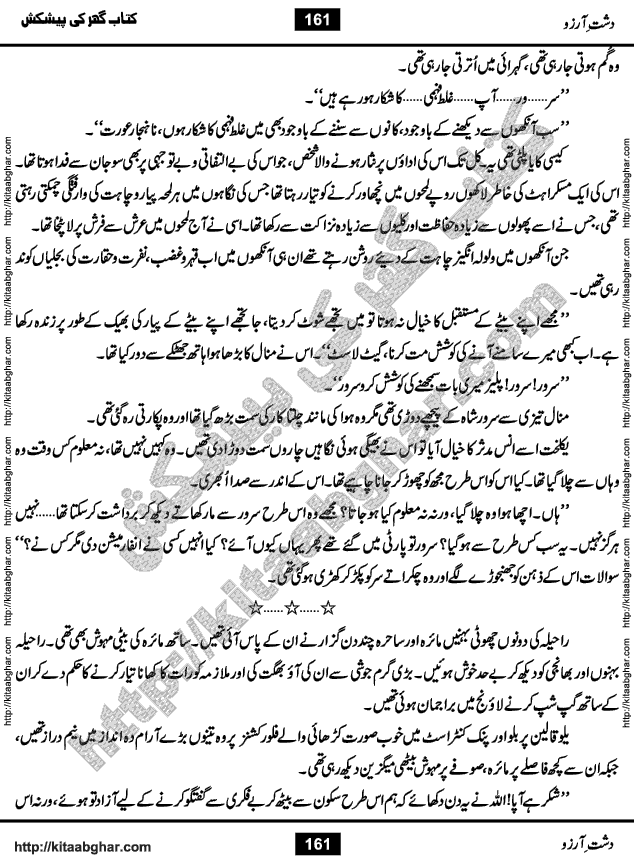 کتاب گھر کی پیشکش 161 دشتِ آرزو
وہ گم ہوتی جا رہی تھی، گہرائی میں اُترتی جا رہی تھی۔
’’سر......ور......آپ......غلط فہمی......کا شکار ہو رہے ہیں‘‘۔
’’سب آنکھوں سے دیکھنے کے باوجود، کانوں سے سننے کے باوجود بھی میں غلط فہمی کا شکار ہوں، ناہنجار عورت‘‘۔
کیسی کایا پلٹی تھی یہ کل تک اس کی اداؤں پر نثار ہونے والا شخص، جو اس کی بے التفاتی و بے توجہی پر بھی سو جان سے فدا ہوتا تھا۔
اس کی ایک مسکراہٹ کی خاطر لاکھوں روپے لمحوں میں نچھاور کرنے کو تیار رہتا تھا جس کی نگاہوں میں ہر لمحہ پیار و چاہت کی وارفتگی چمکتی رہتی
تھی، جس نے اسے پھولوں سے زیادہ حفاظت اور کلیوں سے زیادہ نزاکت سے رکھا تھا۔ اسی نے آج لمحوں میں عرش سے فرش پر لا پٹخا تھا۔
جن آنکھوں میں ولولہ انگیز چاہت کے دیئے روشن رہتے تھے ان ہی آنکھوں میں اب قہر و غضب، نفرت و حقارت کی بجلیاں کوند
رہی تھیں۔
’’مجھے اپنے بیٹے کے مستقبل کا خیال نہ ہوتا تو میں تجھے شوٹ کر دیتا، جا تجھے اپنے بیٹے کے پیار کی بھیک کے طور پر زندہ رکھا
ہے۔ اب کبھی میرے سامنے آنے کی کوشش مت کرنا، گیٹ لاسٹ‘‘۔ اس نے منال کا بڑھا ہوا ہاتھ جھٹکے سے دور کیا تھا۔
’’سرور! سرور! پلیز میری بات سمجھنے کی کوشش کرو سرور‘‘۔
منال تیزی سے سرور شاہ کے پیچھے دوڑی تھی مگر وہ ہوا کی مانند چلتا کار کی سمت بڑھ گیا تھا اور وہ پکارتی رہ گئی تھی۔
یکلخت اسے انس مدثر کا خیال آیا تو اس نے بھیگی ہوئی نگاہیں چاروں سمت دوڑا دی تھیں۔ وہ کہیں نہیں تھا، نہ معلوم کس وقت وہ
وہاں سے چلا گیا تھا۔ کیا اس کو اس طرح مجھ کو چھوڑ کر جانا چاہیے تھا۔ اس کے اندر سے صدا اُبھری۔
’’ہاں۔ اچھا ہوا وہ چلا گیا، ورنہ نہ معلوم کیا ہو جاتا؟ مجھے وہ اس طرح سرور سے مار کھاتے دیکھ کر برداشت کر سکتا تھا......نہیں
ہرگز نہیں۔ یہ سب کس طرح سے ہو گیا؟ سرور تو پارٹی میں گئے تھے پھر یہاں کیوں آئے؟ کیا انہیں کسی نے انفارمیشن دی مگر کس نے؟‘‘
سوالات اس کے ذہن کو جھنجوڑنے لگے اور وہ چکراتے سر کو پکڑ کر کھڑی ہو گئی تھی۔
☆......☆......☆
راحیلہ کی دونوں چھوٹی بہنیں مائرہ اور ساحرہ چند دن گزارنے ان کے پاس آئی تھیں۔ ساتھ مائرہ کی بیٹی مہوش بھی تھی۔ راحیلہ
بہنوں اور بھانجی کو دیکھ کر بے حد خوش ہوئیں۔ بڑی گرم جوشی سے ان کی آؤ بھگت کی اور ملازمہ کو رات کا کھانا تیار کرنے کا حکم دے کر ان
کے ساتھ گپ شپ کرنے لاؤنج میں براجمان ہوئی تھیں۔
یلو قالین پر بلو اور پنک کنٹراسٹ میں خوب صورت کڑھائی والے فلورکشنز پر وہ تینوں بڑے آرام دہ انداز میں نیم دراز تھیں،
جبکہ ان سے کچھ فاصلے پر مائرہ، صوفے پر مہوش بیٹھی میگزین دیکھ رہی تھی۔
’’شکر ہے آپا! اللہ نے یہ دن دکھائے کہ ہم اس طرح سکون سے بیٹھ کر بے فکری سے گفتگو کرنے کے لیے آزاد تو ہوئے، ورنہ اس
http://kitaabghar.com 161 دشتِ آرزو
http://kitaabghar.com
http://kitaabghar.com
http://kitaabghar.com
http://kitaabghar.com
http://kitaabghar.com
http://kitaabghar.com
http://kitaabghar.com
http://kitaabghar.com
کتاب گھر کی پیشکش
http://kitaabghar.com